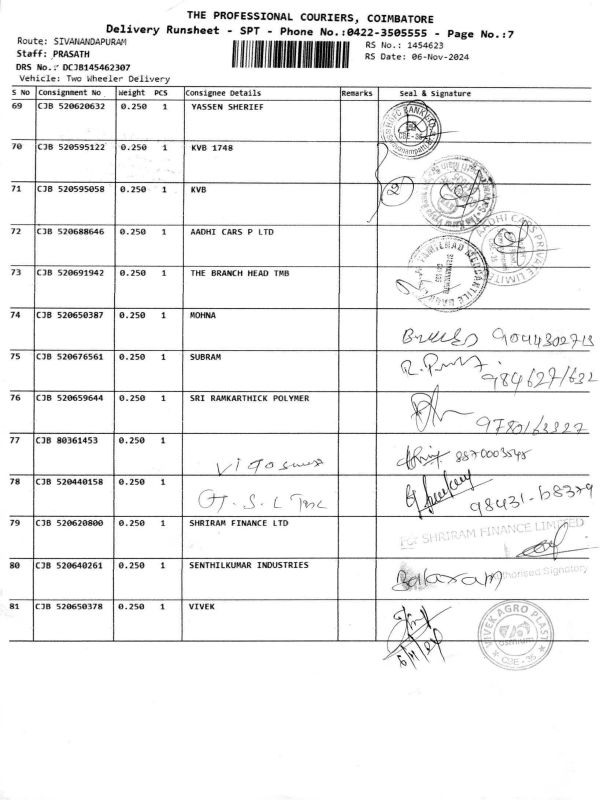 THE PROFESSIONAL COURIERS, COIMBATORE
Delivery Runsheet - SPT - Phone No.:0422-3505555 - Page No.:7
Route: SIVANANDAPURAM
RS No.: 1454623
Staff: PRASATH
RS Date: 06-Nov-2024
DRS No.: DCJB145462307
Vehicle: Two Wheeler Delivery
S No Consignment No Weight PCS Consignee Details Remarks Seal & Signature
69 CJB 520620632 0.250 1 YASSEN SHERIEF
70 CJB 520595122 0.250 1 KVB 1748
71 CJB 520595058 0.250 1 KVB
72 CJB 520688646 0.250 1 AADHI CARS P LTD
AADHI CARS PRIVATE LIMITED
73 CJB 520691942 0.250 1 THE BRANCH HEAD TMB
74 CJB 520650387 0.250 1 MOHNA
9044302713
75 CJB 520676561 0.250 1 SUBRAM
9846271632
76 CJB 520659644 0.250 1 SRI RAMKARTHICK POLYMER
9780163327
77 CJB 80361453 0.250 1
8870003545
78 CJB 520440158 0.250 1
98431-68379
79 CJB 520620800 0.250 1 SHRIRAM FINANCE LTD
For SHRIRAM FINANCE LIMITED
80 CJB 520640261 0.250 1 SENTHILKUMAR INDUSTRIES
Balaram Authorised Signatory
81 CJB 520650378 0.250 1 VIVEK
VIVEK AGRO PLAST
CBE - 35